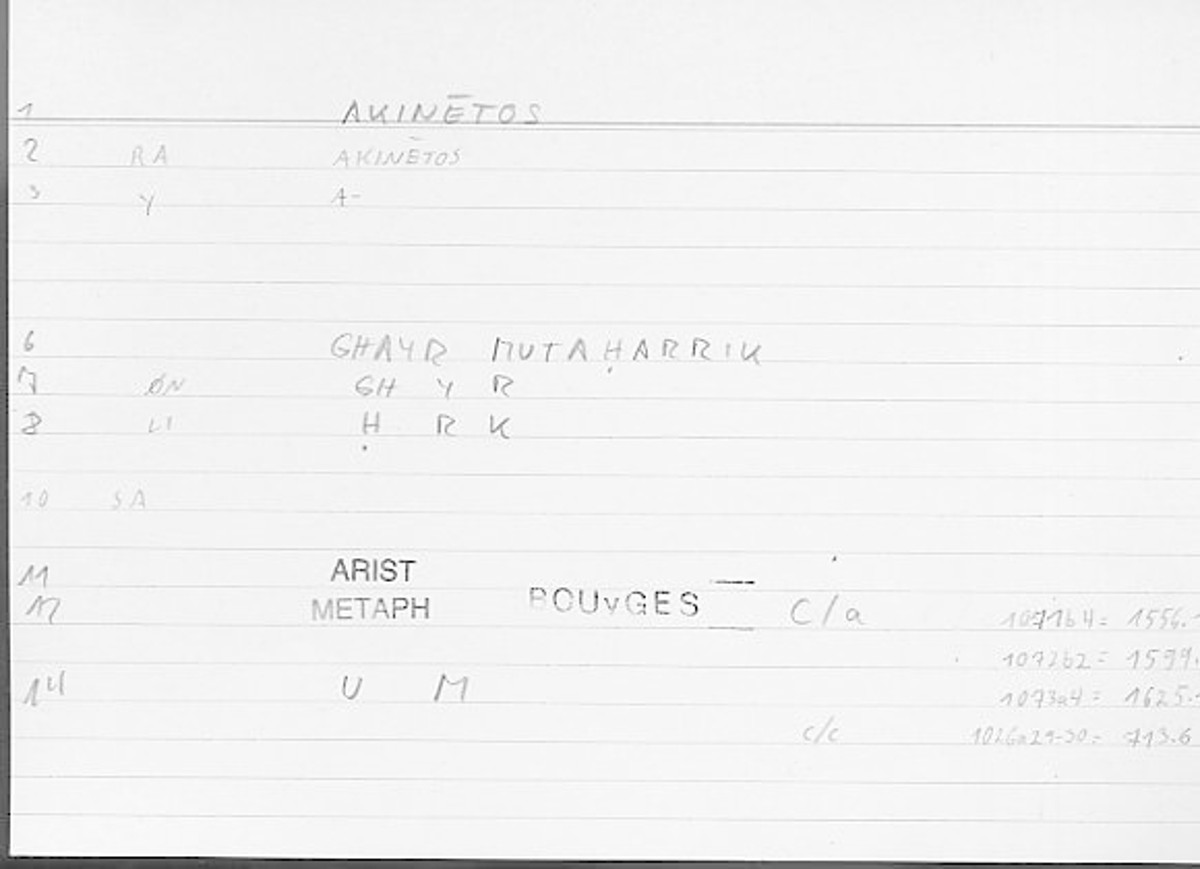 1 AKINĒTOS
2 RA AKINĒTOS
3 Y A-
6 GHAYR MUTAḤARRIK
7 ØN GH Y R
8 LI Ḥ R K
10 SA
11 ARIST
12 METAPH BOUYGES C/a 1071b4= 1556.
1072b2= 1599.
14 U M 1073a4= 1625.
c/c 1026a29-30= 713.6